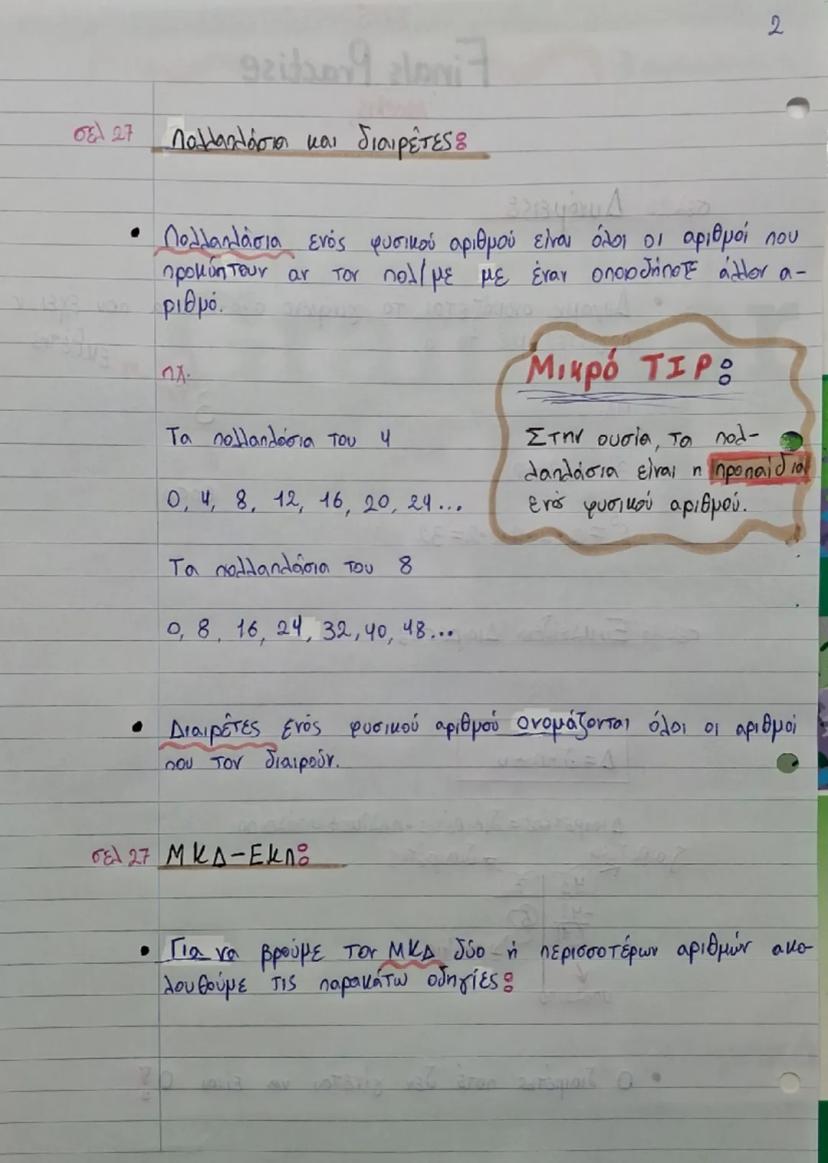 2
σελ 27 Πολλαπλάσια και διαιρέτες:
• Πολλαπλάσια ενός φυσικού αριθμού είναι όλοι οι αριθμοί που
προκύπτουν αν τον πολ/με με έναν οποιοδήποτε άλλον α-
ριθμό.
πχ.
Τα πολλαπλάσια του 4
0, 4, 8, 12, 16, 20, 24...
Μικρό TIP:
Στην ουσία, τα πολ-
λαπλάσια είναι η προπαίδια
ενός φυσικού αριθμού.
Τα πολλαπλάσια του 8
0, 8, 16, 24, 32, 40, 48...
• Διαιρέτες ενός φυσικού αριθμού ονομάζονται όλοι οι αριθμοί
που τον διαιρούν.
σελ 27 ΜΚΔ-ΕΚΠ:
• Για να βρούμε τον ΜΚΔ δύο ή περισσοτέρων αριθμών ακο-
λουθούμε τις παρακάτω οδηγίες: